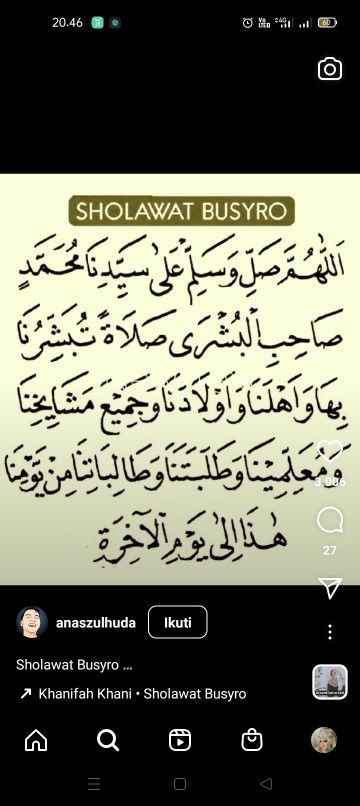 20.46
Vo LTE
4G
60
SHOLAWAT BUSYRO
اَللّٰهُمَّ صَلِّ وَسَلِّمْ عَلٰى سَيِّدِنَا مُحَمَّدٍ
صَاحِبِ الْبُشْرَى صَلَاةً تُبَشِّرُنَا
بِهَا وَاَهْلَنَا وَاَوْلَادَنَا وَجَمِيْعَ مَشَايِخِنَا
وَمُعَلِّمِيْنَا وَطَلَبَتَنَا وَطَالِبَاتِنَا مِنْ يَوْمِنَا
هٰذَا اِلٰى يَوْمِ الْآخِرَةِ
3.906
27
anaszulhuda
Ikuti
Sholawat Busyro ...
Khanifah Khani • Sholawat Busyro